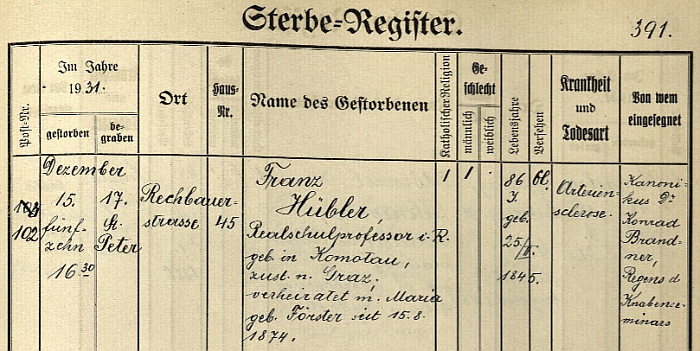 Sterbe-Register.
391.
Post-Nr.
Im Jahre
1931.
gestorben
be-
graben
Ort
Haus-
Nr.
Name des Gestorbenen
Katholischer Religion
Ge-
schlecht
männlich
weiblich
Lebensjahre
Versehen
Krankheit
und
Todesart
Von wem
eingesegnet
102
Dezember
15.
fünf-
zehn
16 30
17.
St.
Peter
Rechbauer-
strasse
45
Franz
Hübler,
Realschulprofessor i. R.
geb. in Komotau,
zust. n. Graz,
verheiratet m. Maria
geb. Förster seit 15.8.
1874.
1
1
86
J.
geb.
25/II.
1845.
Öl.
Arterien-
sclerose.
Kanoni-
kus Dr.
Konrad
Brand-
ner,
Regens d.
Knabense-
minars